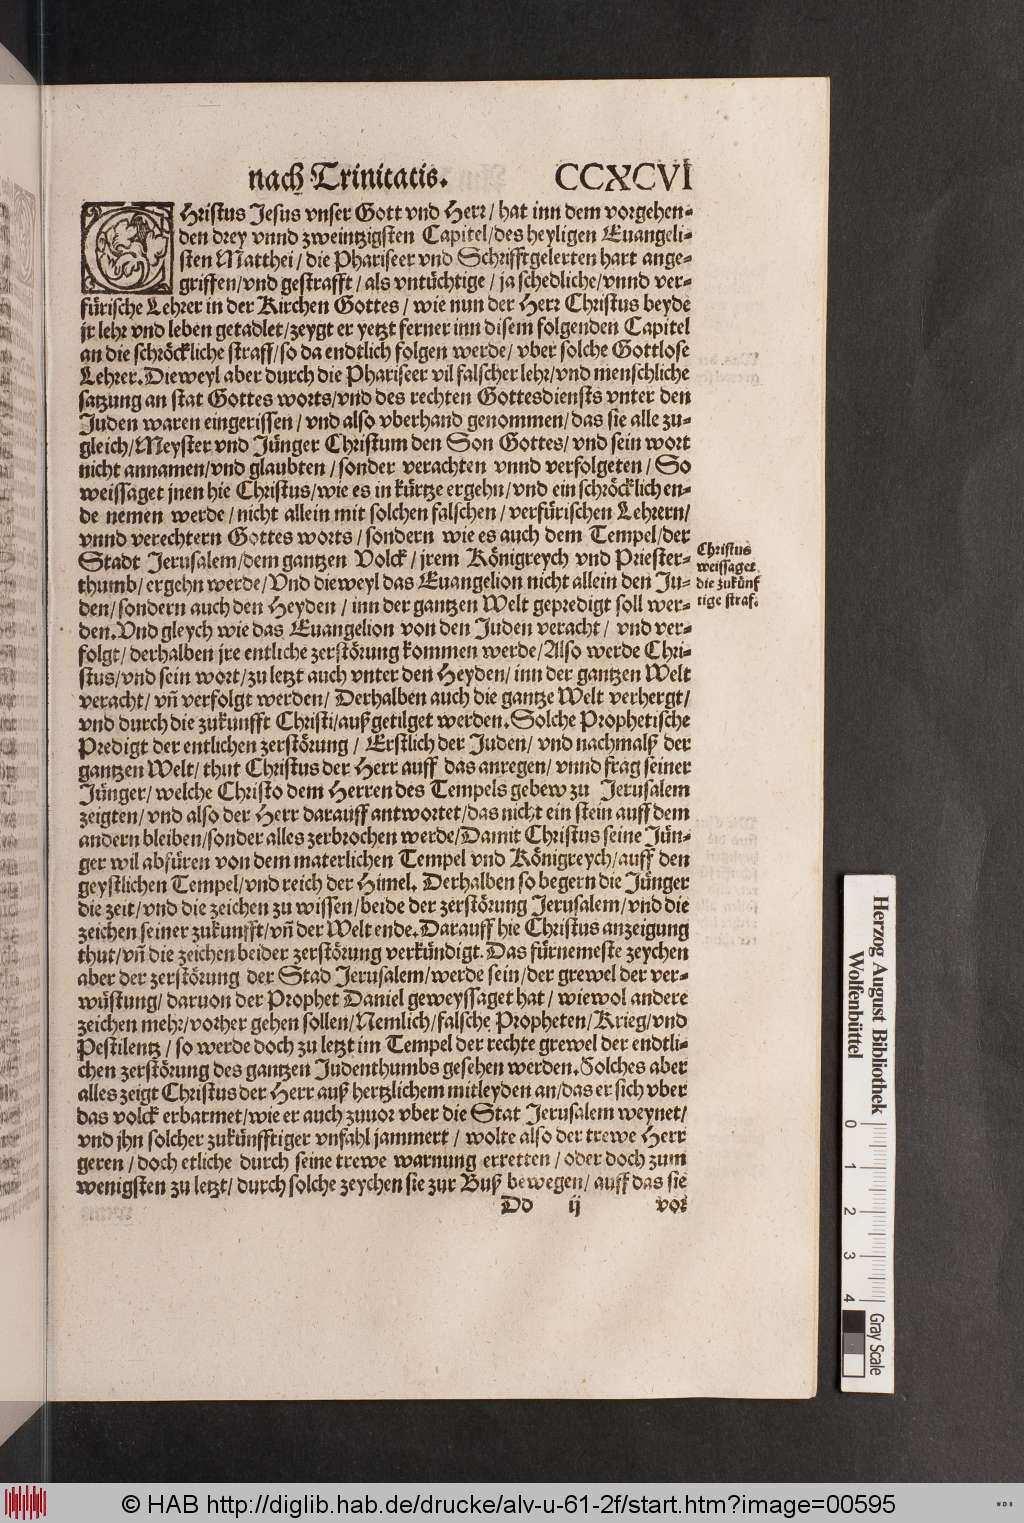 nach Trinitatis. CCXCVI
CHristus Jesus vnser Gott vnd Herr / hat inn dem vorgehen-
den drey vnnd zweintzigsten Capitel / des heyligen Euangeli-
sten Matthei / die Phariseer vnd Schrifftgelerten hart ange-
griffen / vnd gestrafft / als vntüchtige / ja schedliche / vnnd ver-
fürische Lehrer in der Kirchen Gottes / wie nun der Herr Christus beyde
jr lehr vnd leben getadlet / zeygt er yetzt ferner inn disem folgenden Capitel
an die schröckliche straff / so da endtlich folgen werde / vber solche Gottlose
Lehrer. Dieweyl aber durch die Phariseer vil falscher lehr / vnd menschliche
satzung an stat Gottes worts / vnd des rechten Gottesdiensts vnter den
Juden waren eingerissen / vnd also vberhand genommen / das sie alle zu-
gleich / Meyster vnd Jünger Christum den Son Gottes / vnd sein wort
nicht annamen / vnd glaubten / sonder verachten vnnd verfolgeten / So
weissaget jnen hie Christus / wie es in kürtze ergehn / vnd ein schröcklich en-
de nemen werde / nicht allein mit solchen falschen / verfürischen Lehrern /
vnnd verechtern Gottes worts / sondern wie es auch dem Tempel / der
Stadt Jerusalem / dem gantzen Volck / jrem Königreych vnd Priester-
thumb / ergehn werde / Vnd dieweyl das Euangelion nicht allein den Ju-
den / sondern auch den Heyden / inn der gantzen Welt gepredigt soll wer-
den. Vnd gleych wie das Euangelion von den Juden veracht / vnd ver-
folgt / derhalben jre entliche zerstörung kommen werde / Also werde Chri-
stus / vnd sein wort / zu letzt auch vnter den Heyden / inn der gantzen Welt
veracht / vñ verfolgt werden / Derhalben auch die gantze Welt verhergt /
vnd durch die zukunfft Christi / außgetilget werden. Solche Prophetische
Predigt der entlichen zerstörung / Erstlich der Juden / vnd nachmalß der
gantzen Welt / thut Christus der Herr auff das anregen / vnnd frag seiner
Jünger / welche Christo dem Herren des Tempels gebew zu Jerusalem
zeigten / vnd also der Herr darauff antwortet / das nicht ein stein auff dem
andern bleiben / sonder alles zerbrochen werde / Damit Christus seine Jün-
ger wil abfüren von dem materlichen Tempel vnd Königreych / auff den
geystlichen Tempel / vnd reich der Himel. Derhalben so begern die Jünger
die zeit / vnd die zeichen zu wissen / beide der zerstörung Jerusalem / vnd die
zeichen seiner zukunfft / vñ der Welt ende. Darauff hie Christus anzeigung
thut / vñ die zeichen beider zerstörung verkündigt. Das fürnemeste zeychen
aber der zerstörung der Stad Jerusalem / werde sein / der grewel der ver-
wüstung / daruon der Prophet Daniel geweyssaget hat / wiewol andere
zeichen mehr / vorher gehen sollen / Nemlich / falsche Propheten / Krieg / vnd
Pestilentz / so werde doch zu letzt im Tempel der rechte grewel der endtli-
chen zerstörung des gantzen Judenthumbs gesehen werden. Solches aber
alles zeigt Christus der Herr auß hertzlichem mitleyden an / das er sich vber
das volck erbarmet / wie er auch zuuor vber die Stat Jerusalem weynet /
vnd jhn solcher zukünfftiger vnfahl jammert / wolte also der trewe Herr
geren / doch etliche durch seine trewe warnung erretten / oder doch zum
wenigsten zu letzt / durch solche zeychen sie zur Buß bewegen / auff das sie
Dd ij vor
Christus
weissaget
die zukünf
tige straf.
Herzog August Bibliothek
Wolfenbüttel
0 1 2 3 4
Gray Scale
© HAB http://diglib.hab.de/drucke/alv-u-61-2f/start.htm?image=00595
WDB